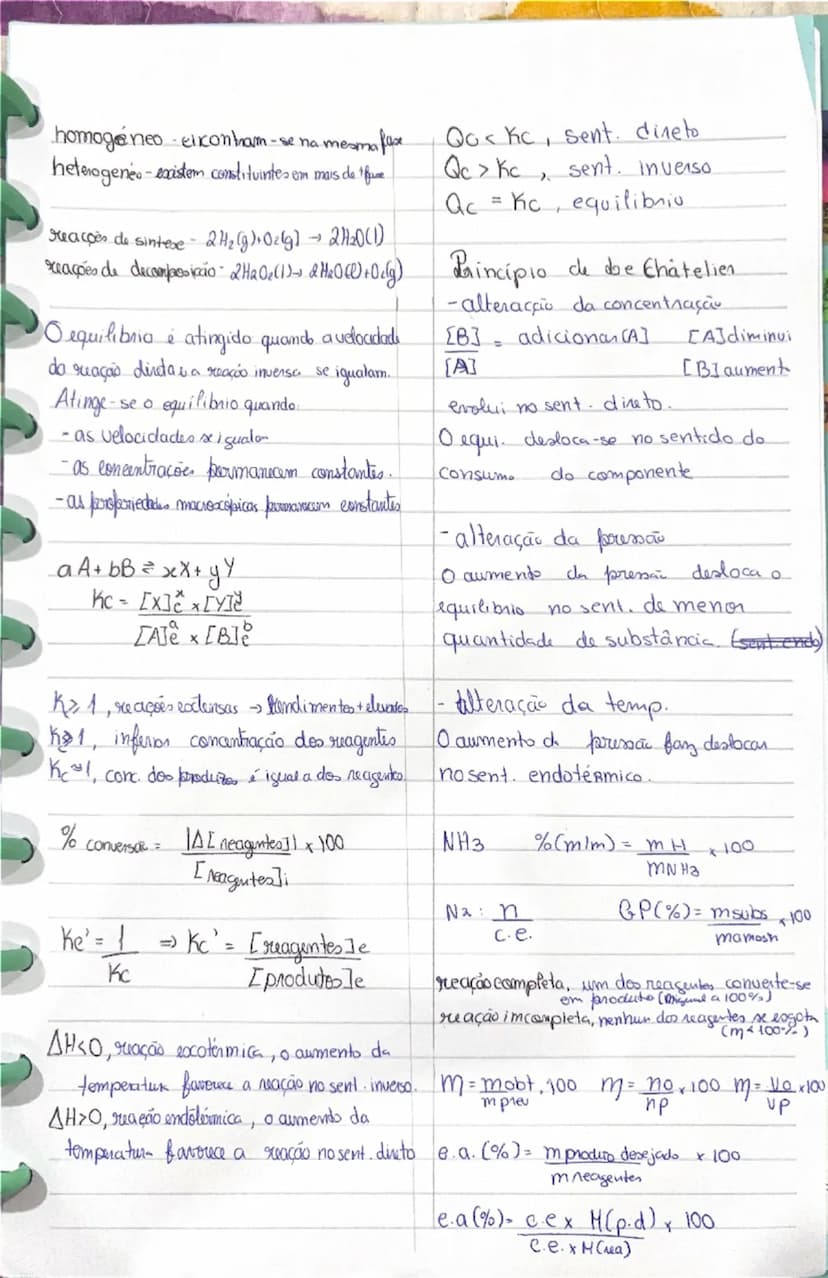 homogéneo - encontram-se na mesma fase
heterogenéo - existem constituintes em mais de 1 fase
reacções de sintese - 2H2(g)+O2(g) → 2H2O(l)
reações de decomposição - 2H2O2(l) → 2H2O(l)+O2(g)
O equilíbrio é atingido quando a velocidade
da reação direta e a reação inversa se igualam.
Atinge-se o equilíbrio quando
- as velocidades se igualam
- as concentrações permanecem constantes.
- as propriedades macroscópicas permanecem constantes
aA + bB ⇄ xX + yY
Kc = [X]e^x × [Y]e^y
[A]e^a × [B]e^b
K≥1, reações extensas → Rendimentos + elevados
K≥1, inferior concentração dos reagentes
Kc≈1, conc. dos produtos é igual a dos reagentes.
% conversão = |Δ[reagentes]| × 100
[reagentes]i
Kc' = 1 ⇒ Kc' = [reagentes]e
Kc [produtos]e
ΔH<0, reação exotérmica, o aumento da
temperatura favorece a reação no sent. inverso.
ΔH>0, reação endotérmica, o aumento da
temperatura favorece a reação no sent. direto
Qc < Kc, sent. direto
Qc > Kc, sent. inverso
Qc = Kc, equilibrio
Princípio de Le Châtelier
- alteracção da concentração
[B] = adicionar [A] [A] diminui
[A] [B] aument
evolui no sent. direto.
O equi. desloca-se no sentido do
consumo do componente
- alteração da pressão
O aumento da pressão desloca o
equilibrio no sent. de menor
quantidade de substância. (sent. endo)
- Alteração da temp.
O aumento da pressão faz deslocar
no sent. endotérmico.
NH3 %(m/m) = mH × 100
mNH3
n GP(%) = msubs × 100
c.e. mamostr
reação completa, um dos reagentes converte-se
em produto (a 100%)
reação imcompleta, nenhum dos reagentes se esgota
(η < 100%)
η = mobt . 100 η = no × 100 η = Vo × 100
mprev np Vp
e.a. (%) = m produto desejado × 100
m reagentes
e.a (%) = c.e × M(p.d) × 100
c.e. × M(rea)